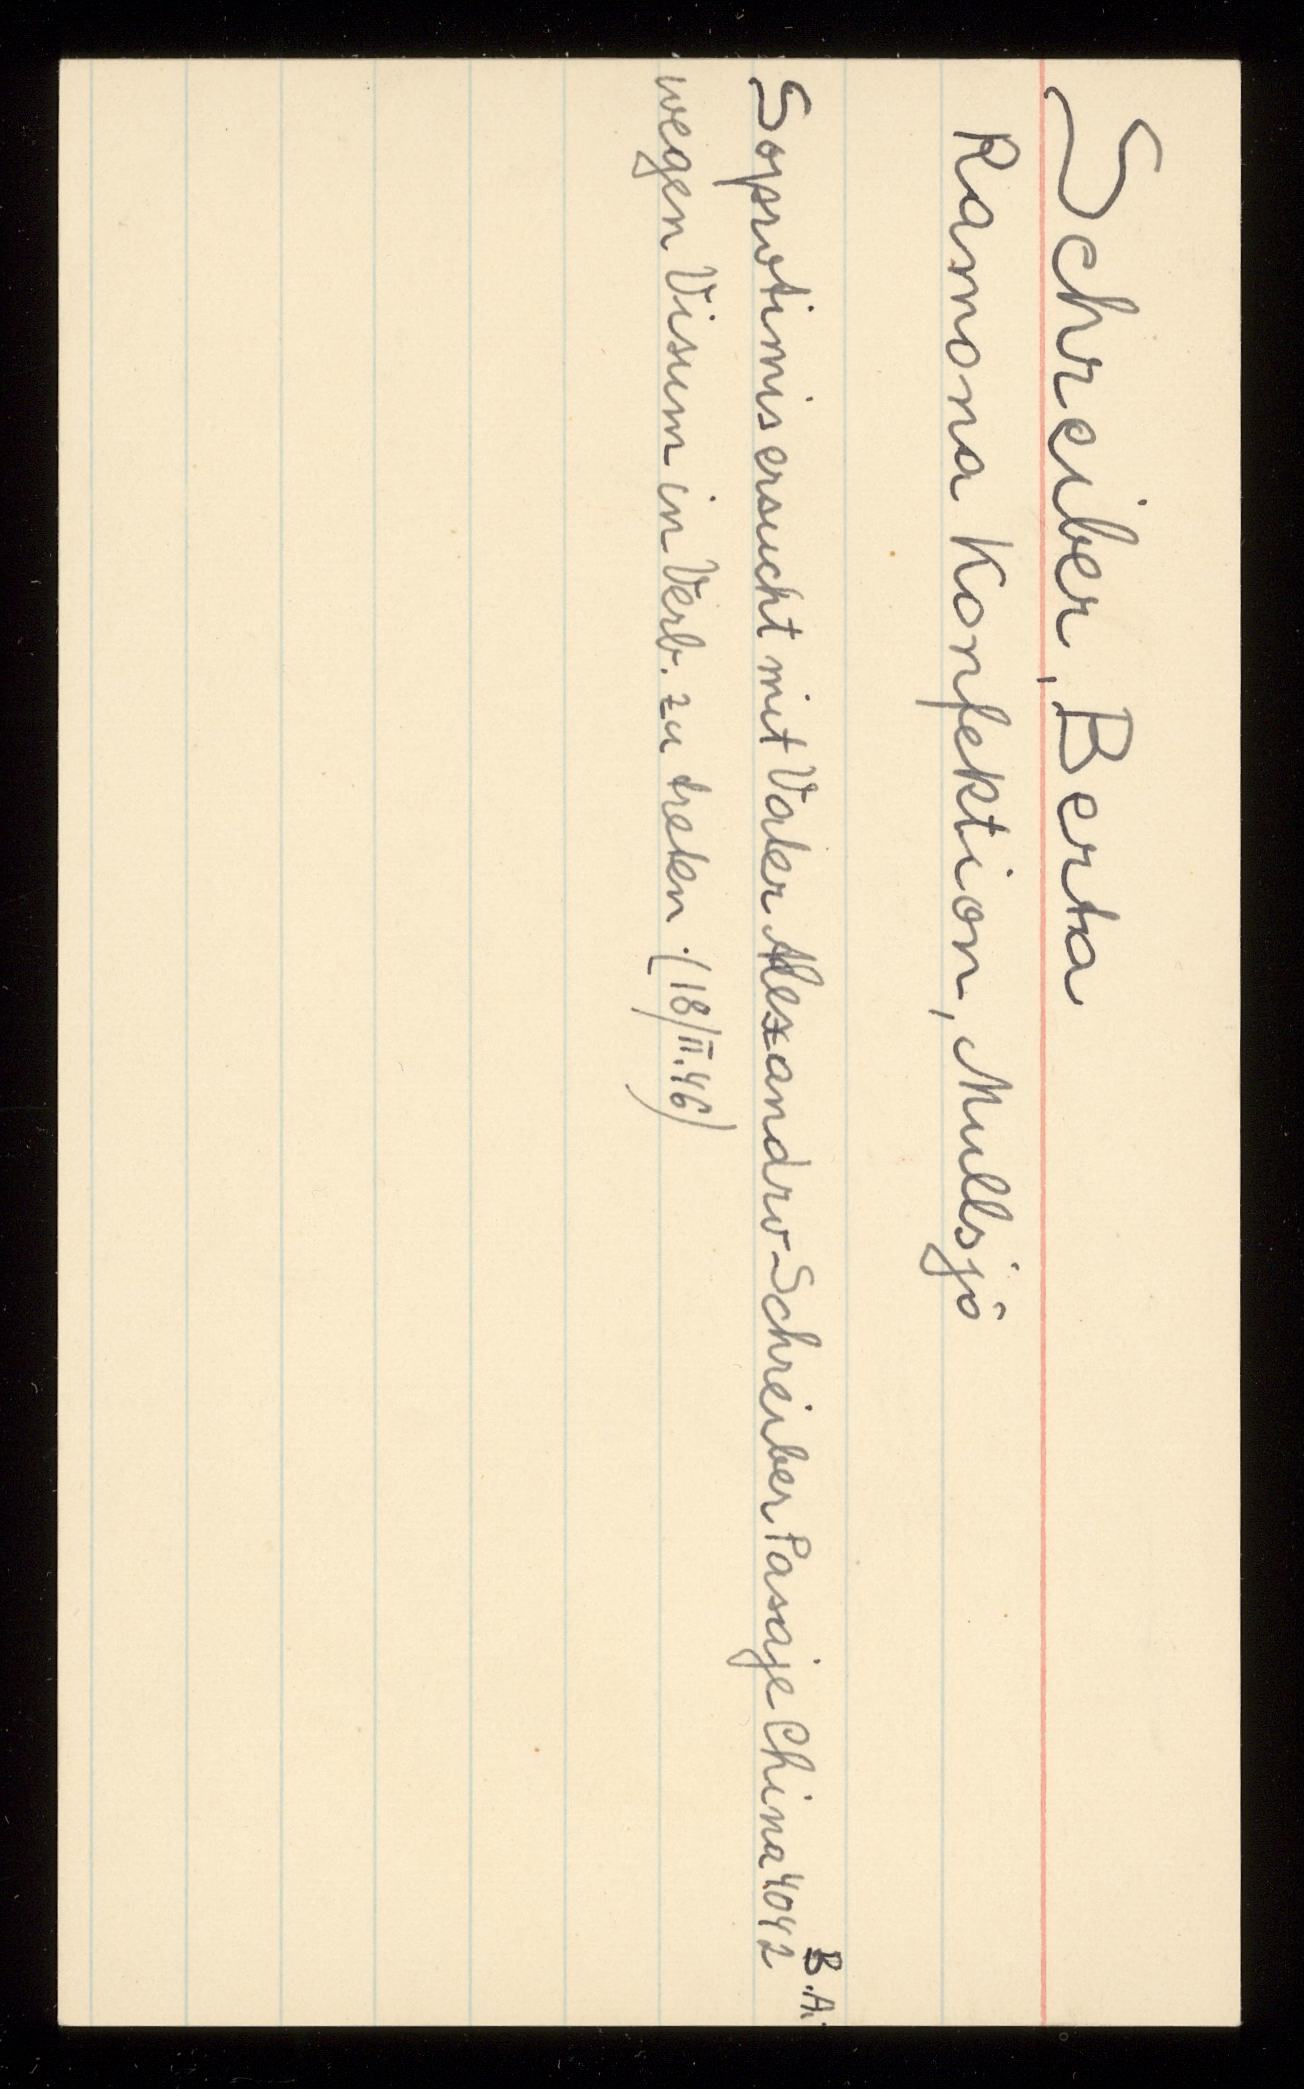 Schreiber, Berta
Ramona Konfektion, Mullsjö
Soprotimis ersucht mit Vater Alexandro-Schreiber Pasaje China 4042 B.A.
wegen Visum in Verb. zu treten. (18/II.46)